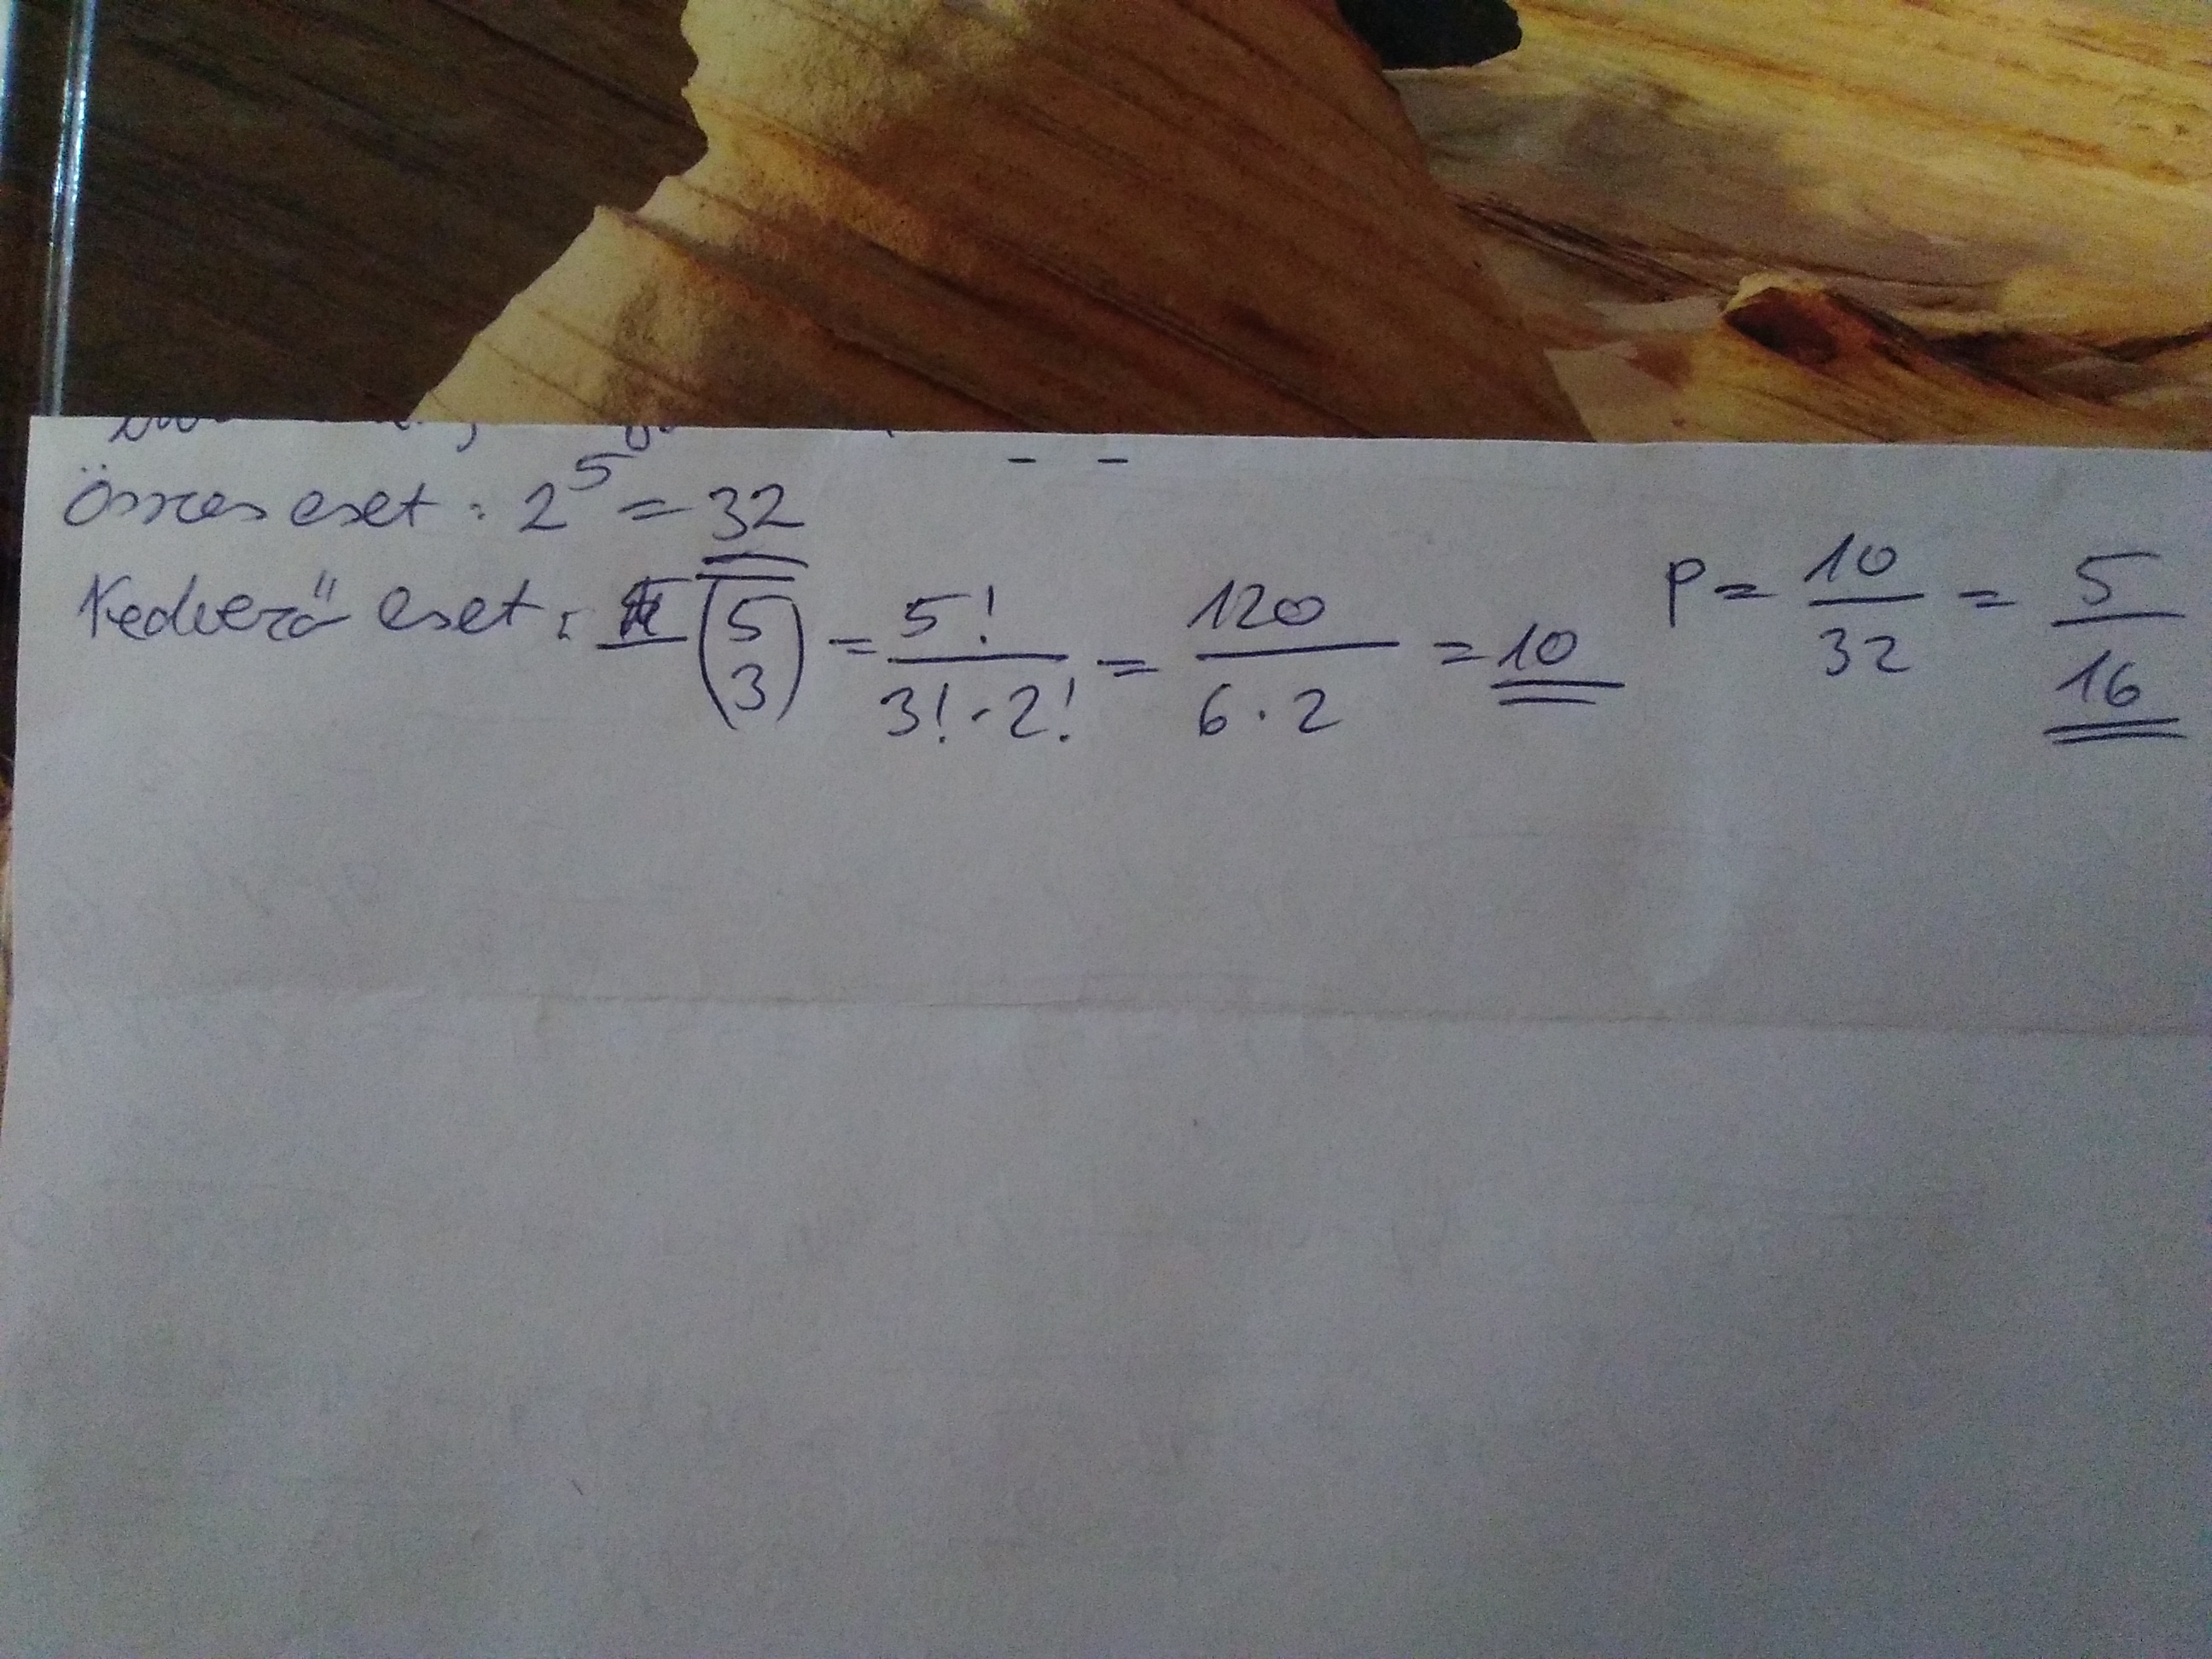 Összes eset: 2^5 = 32
Kedvező eset: (5 3) = 5! / 3! · 2! = 120 / 6 · 2 = 10 P = 10/32 = 5/16